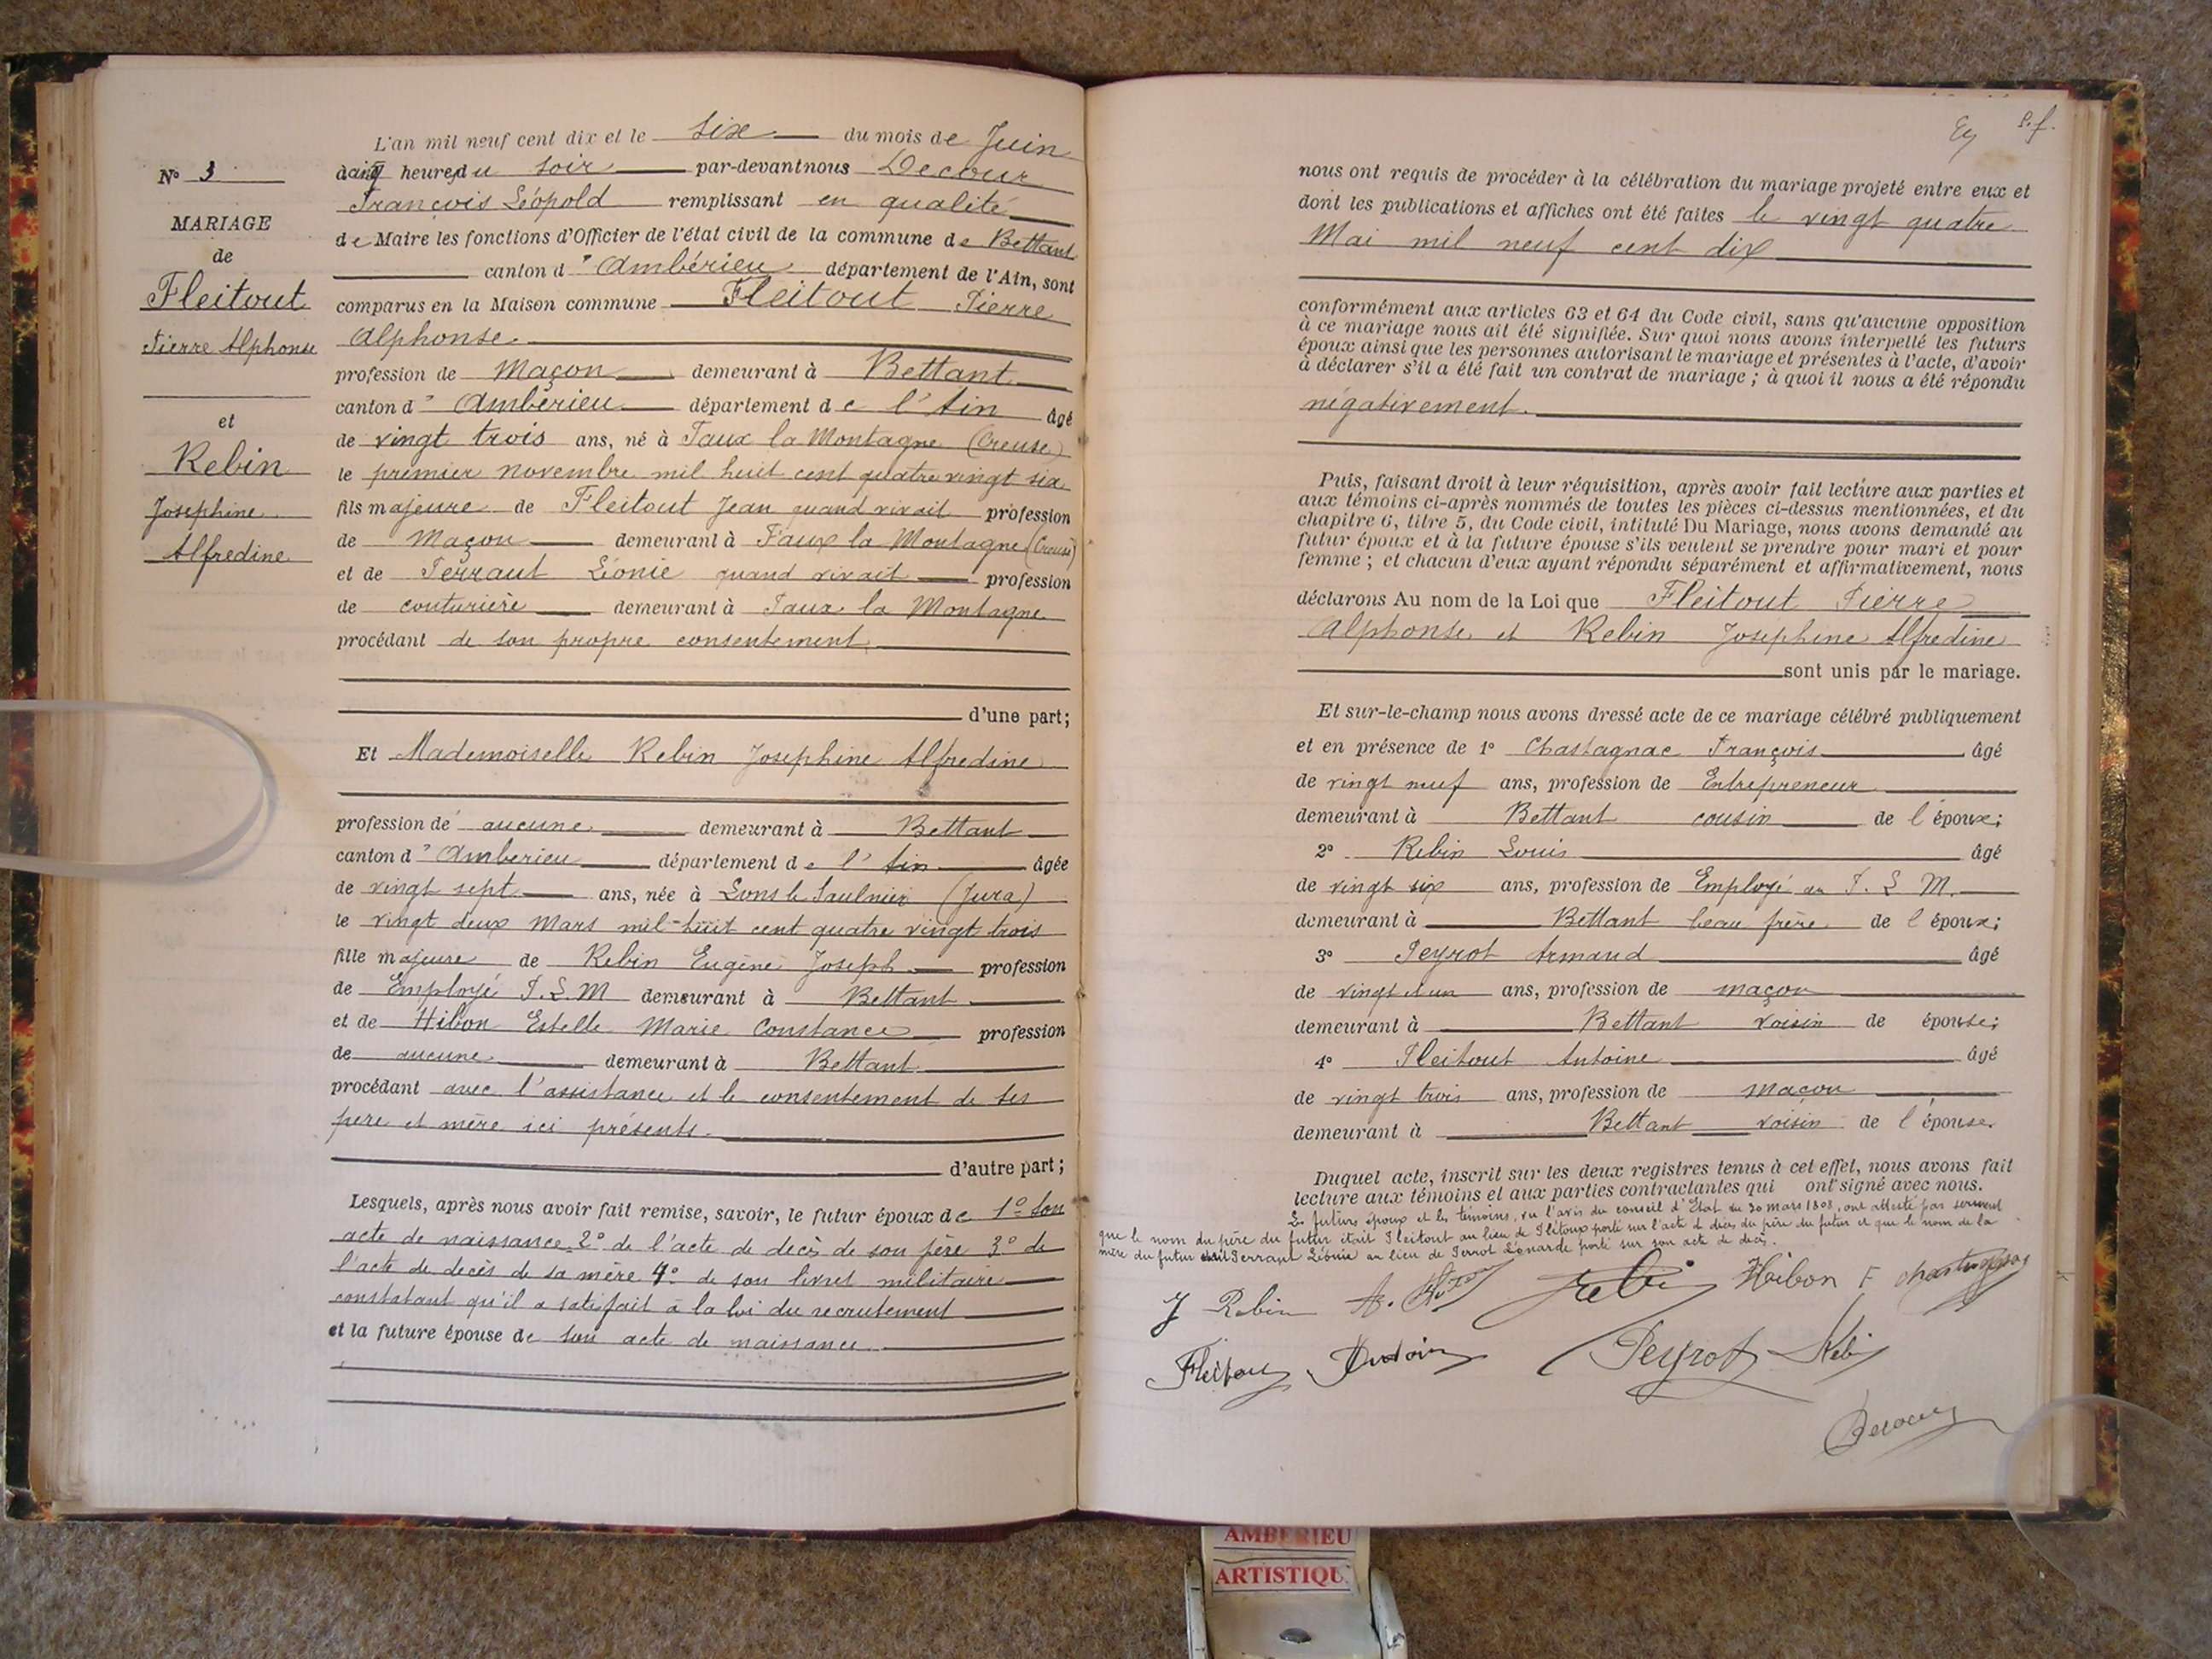 N° 3
MARIAGE
de
Fleitout
Pierre Alphonse
et
Rebin
Josephine
Alfredine
L'an mil neuf cent dix et le six du mois de Juin
à cinq heures du soir par-devant nous Decour
François Léopold remplissant en qualité
de Maire les fonctions d'Officier de l'état civil de la commune de Bettant
canton d' Ambérieu département de l'Ain, sont
comparus en la Maison commune Fleitout Pierre
Alphonse
profession de Maçon demeurant à Bettant
canton d' Ambérieu département de l'Ain âgé
de vingt trois ans, né à Faux la Montagne (Creuse)
le premier novembre mil huit cent quatre vingt six
fils majeure de Fleitout Jean quand vivait profession
de Maçon demeurant à Faux la Montagne (Creuse)
et de Ferraut Léonie quand vivait profession
de couturière demeurant à Faux la Montagne
procédant de son propre consentement
d'une part;
Et Mademoiselle Rebin Josephine Alfredine
profession de aucune demeurant à Bettant
canton d' Amberieu département de l'Ain âgée
de vingt sept ans, née à Lons le Saulnier (Jura)
le vingt deux Mars mil huit cent quatre vingt trois
fille majeure de Rebin Eugène Joseph profession
de Employé P.L.M demeurant à Bettant
et de Hibon Estelle Marie Constance profession
de aucune demeurant à Bettant
procédant avec l'assistance et le consentement de ses
père et mère ici présents.
d'autre part;
Lesquels, après nous avoir fait remise, savoir, le futur époux de 1° son
acte de naissance 2° de l'acte de decès de son père 3° de
l'acte de decès de sa mère 4° de son livret militaire
constatant qu'il a satisfait à la loi du recrutement
et la future épouse de son acte de naissance
P.f.
nous ont requis de procéder à la célébration du mariage projeté entre eux et
dont les publications et affiches ont été faites le vingt quatre
Mai mil neuf cent dix
conformément aux articles 63 et 64 du Code civil, sans qu'aucune opposition
à ce mariage nous ait été signifiée. Sur quoi nous avons interpellé les futurs
époux ainsi que les personnes autorisant le mariage et présentes à l'acte, d'avoir
à déclarer s'il a été fait un contrat de mariage ; à quoi il nous a été répondu
négativement.
Puis, faisant droit à leur réquisition, après avoir fait lecture aux parties et
aux témoins ci-après nommés de toutes les pièces ci-dessus mentionnées, et du
chapitre 6, titre 5, du Code civil, intitulé Du Mariage, nous avons demandé au
futur époux et à la future épouse s'ils veulent se prendre pour mari et pour
femme ; et chacun d'eux ayant répondu séparément et affirmativement, nous
déclarons Au nom de la Loi que Fleitout Pierre
Alphonse et Rebin Josephine Alfredine
sont unis par le mariage.
Et sur-le-champ nous avons dressé acte de ce mariage célébré publiquement
et en présence de 1° Chastagnac François âgé
de vingt neuf ans, profession de Entrepreneur
demeurant à Bettant cousin de l'époux;
2° Rebin Louis âgé
de vingt six ans, profession de Employé au P. L M.
demeurant à Bettant beau frère de l'époux;
3° Peyrot Armand âgé
de vingt et un ans, profession de maçon
demeurant à Bettant voisin de épouse;
4° Fleitout Antoine âgé
de vingt trois ans, profession de maçon
demeurant à Bettant voisin de l'épouse.
Duquel acte, inscrit sur les deux registres tenus à cet effet, nous avons fait
lecture aux témoins et aux parties contractantes qui ont signé avec nous.
Les futurs époux et les témoins, vu l'avis du conseil d'Etat du 30 mars 1808, ont attesté par serment
que le nom du père du futur était Fleitout au lieu de Flétoux porté sur l'acte de deces du père du futur et que le nom de la
mère du futur était Ferraut Léonie au lieu de Ferrot Léonarde porté sur son acte de decès.
J Rebin Rebin Hibon F chastagnac
Fleitout Antoine Peyrot Rebin
Decour
AMBERIEU
ARTISTIQU